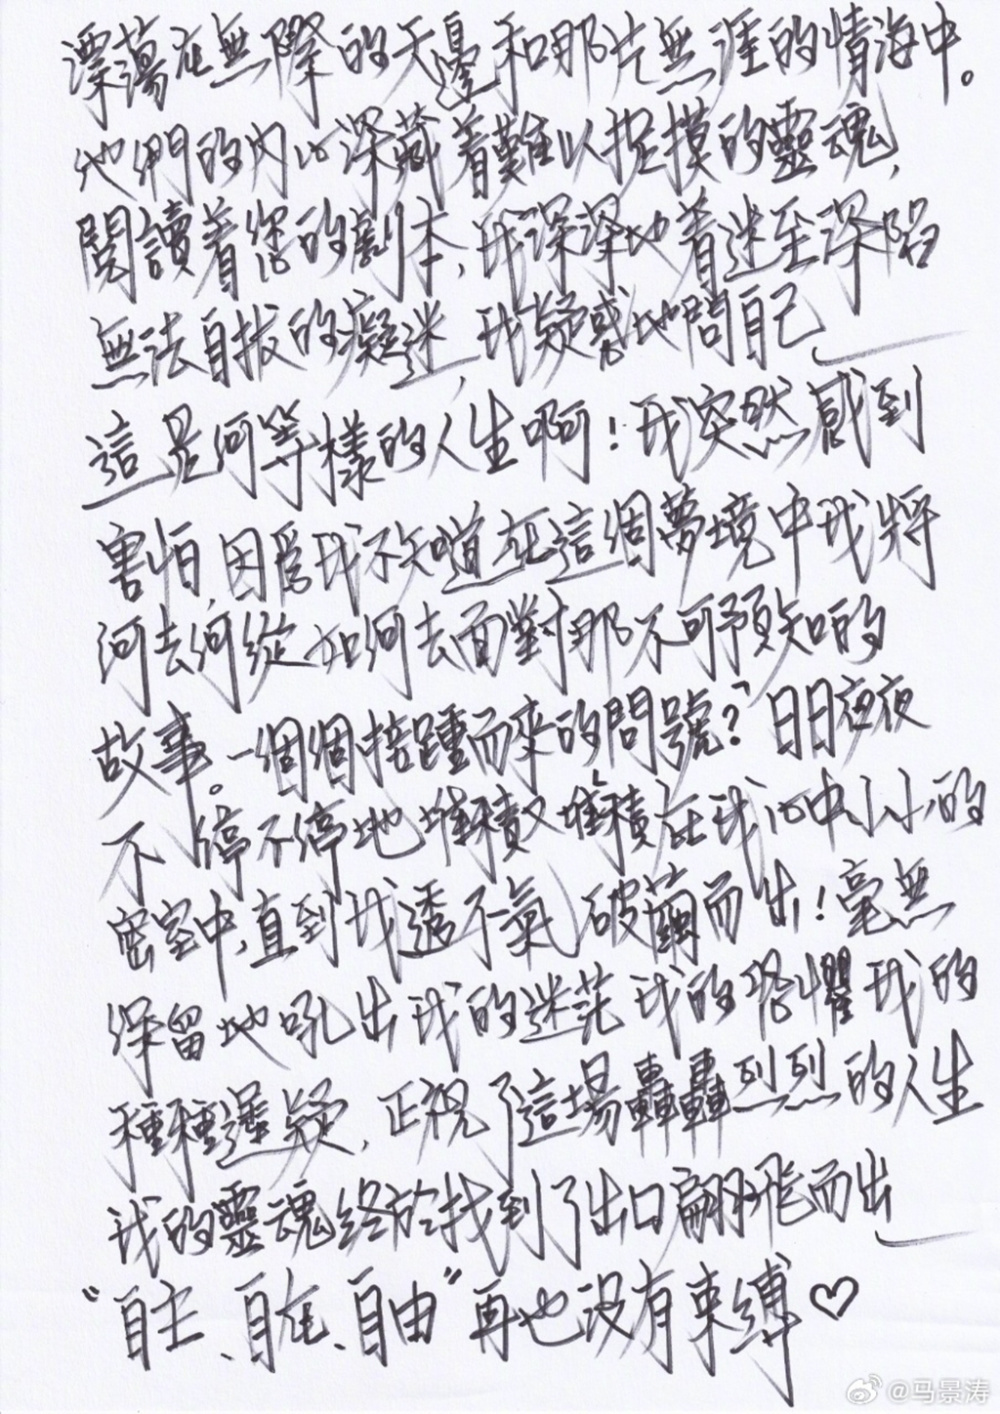 漂蕩在無際的天邊和那片無涯的情海中。
他們的內心深藏着難以捉摸的靈魂,
閱讀着您的劇本,我深深地着迷至深陷
無法自拔的癡迷,我疑惑地問自己
這是何等樣的人生啊!我突然感到
害怕,因爲我不知道在這個夢境中我將
何去何從如何去面對那不可預知的
故事。一個個接踵而來的問號?日日夜夜
不停不停地堆積堆積在我心中小小的
密室中,直到我透不氣破繭而出!毫無
保留地吼出我的迷茫我的恐懼我的
種種遲疑,正視了這場轟轟烈烈的人生
我的靈魂終於找到了出口翩翩飛而出
“自主、自在、自由”再也沒有束縛♡
@马景涛